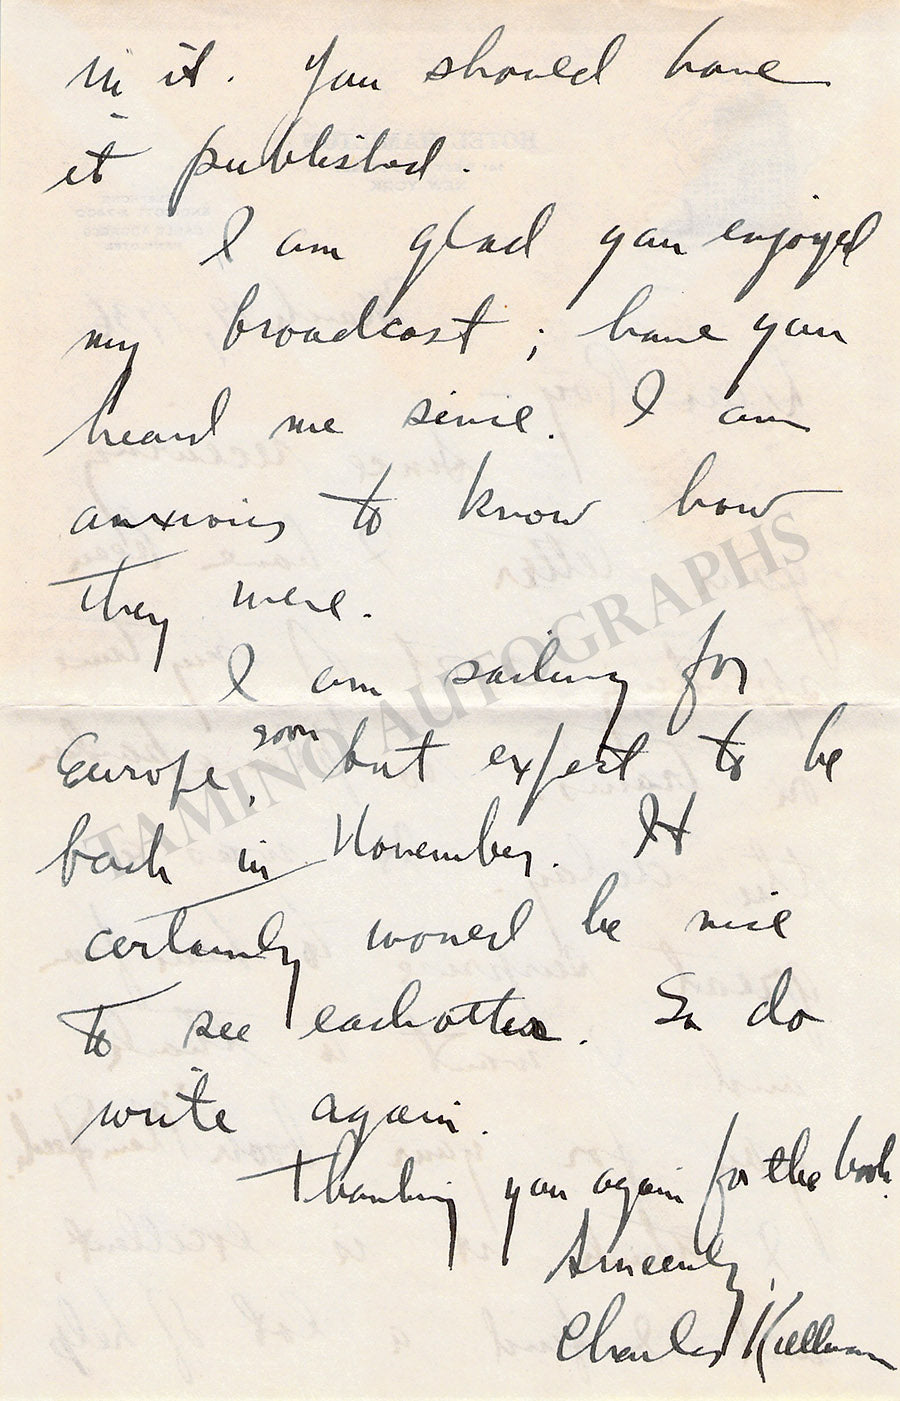 in it. You should have
it published.
I am glad you enjoyed
my broadcast; have you
heard me since. I am
anxious to know how
they were.
I am sailing for
Europe, soon but expect to be
back in November. It
certainly would be nice
to see eachother. So do
write again.
Thanking you again for the book.
Sincerely,
Charles Kullman
TAMINO AUTOGRAPHS